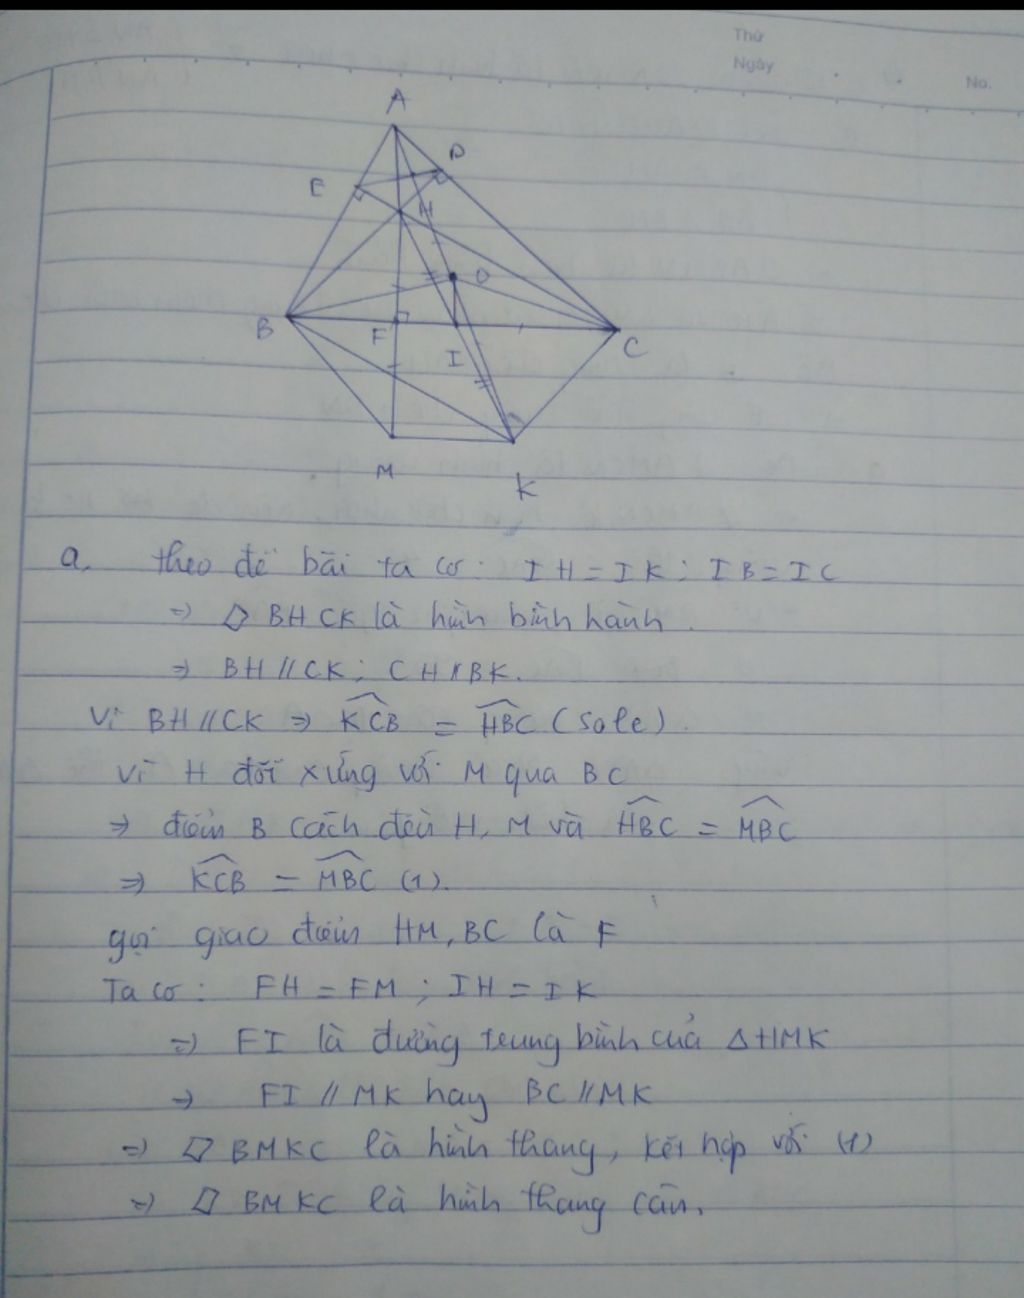 Thứ
Ngày
No.
A
D
E
H
O
B
F
I
C
M
K
a. theo đề bài ta có: IH = IK; IB = IC
=> ▱ BHCK là hình bình hành.
=> BH // CK; CH // BK.
Vì BH // CK => KCB = HBC (sole).
Vì H đối xứng với M qua BC
=> điểm B cách đều H, M và HBC = MBC
=> KCB = MBC (1).
gọi giao điểm HM, BC là F
Ta có: FH = FM; IH = IK
=> FI là đường trung bình của Δ HMK
=> FI // MK hay BC // MK
=> ▱ BMKC là hình thang, kết hợp với (1)
=> ▱ BMKC là hình thang cân.